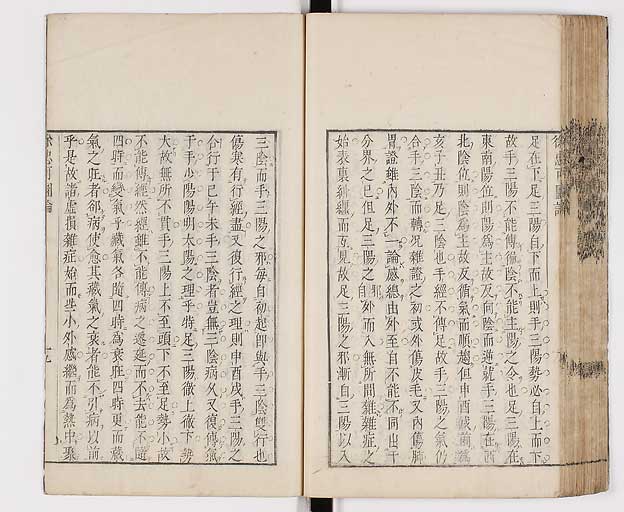 足在下足三陽自下而上則手三陽勢必自上而下
故手三陽不能傳陰不能主陽之令也足三陽在
東南陽位則陽爲主故反向陰而逆就手三陽在西
北陰位則陰爲主故反循氣而順趨但申酉戌
亥子丑乃足三陰也手經不傳足故手三陽之氣仍
合手三陰而轉况雜證之初或外傷皮毛又內傷肺
胃證雖內外不一論感總由外至自不能不同出于
分界之已但足三陽之邪自外而入無所間雜雜症之
始表裏糾纒而互見故足三陽之邪漸自三陽以入
三陰而手三陽之邪每自初起卽與手三陰雙行也
傷寒有行經盡又復行經之理則申酉戌手三陽之
合行于巳午未手三陰者豈無三陰病久又復傳
于手少陽陽明太陽之理乎特足三陽徹上徹下勢
大故無所不貫手三陽上不至頭下不至足勢小故
不能傳經然經雖不能傳病之遷延而不去能不隨
四時而變氣乎藏氣各隨四時爲衰旺四時更而藏
氣之旺者郤病使愈其藏氣之衰者能不引病以前
乎是故諸虛損雜症始而些小外感繼而爲熱中聚